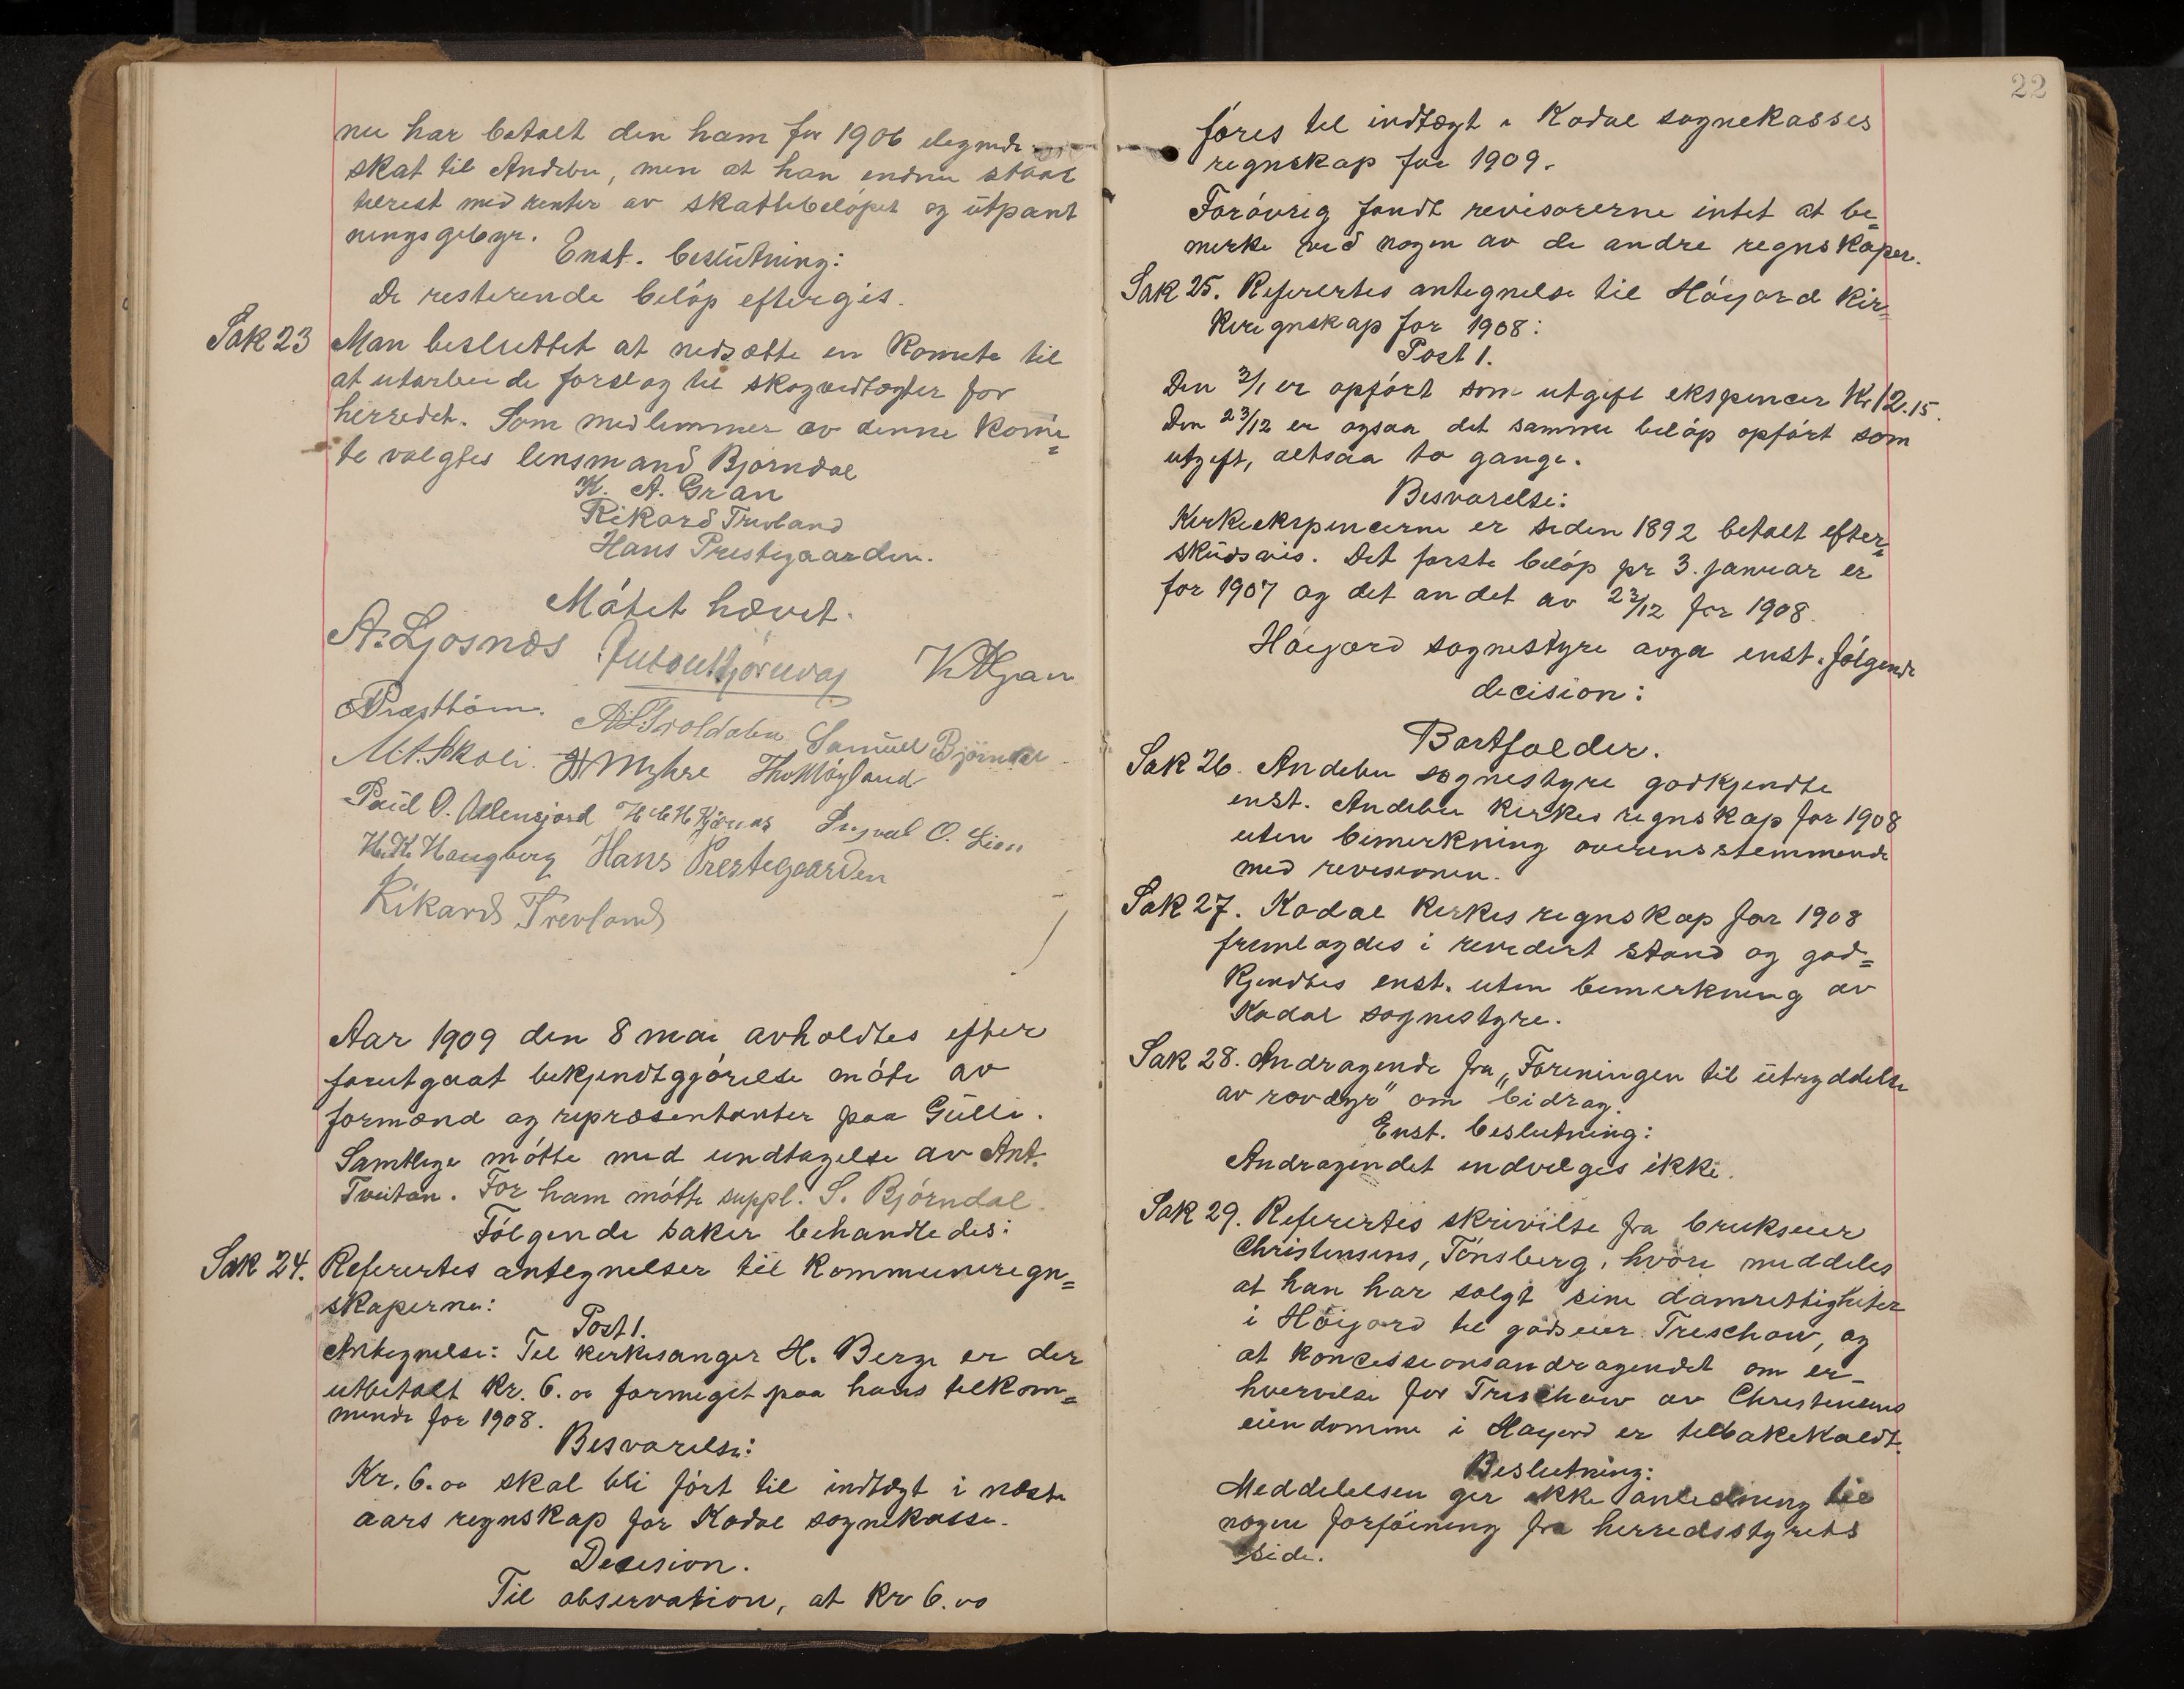 nu har betalt den ham for 1906 ilegnede
skat til Andebu, men at han endnu staar
tilrest med renter av skattebeløpet og utpant
ningsgebyr.
Enst. beslutning:
De resterende beløp eftergis.
Sak 23 Man besluttet at nedsætte en komite til
at utarbeide forslag til skogvedtægter for
herredet. Som medlemmer av denne komi=
te valgtes lensmand Bjørndal
K. A. Gran
Rikard Trevland
Hans Prestegaarden.
Møtet hævet.
A. Ljosnæs K A Gran
Samuel Bjørndal
M. A. Skoli. H Myhre Tho Møyland
Paul O. Ingval O. Lien
H. K. Haugberg Hans Prestegaarden
Rikard Trevland
Aar 1909 den 8 mai avholdtes efter
forutgaat bekjendtgjørelse møte av
formænd og repræsentanter paa Gulli.
Samtlige møtte med undtagelse av Ant.
Tveitan. For ham møtte suppl. S. Bjørndal.
Følgende saker behandledes:
Sak 24. Referertes antegnelser til kommuneregn=
skaperne:
Post 1.
Antegnelse: Til kirkesanger H. Berge er der
utbetalt Kr. 6.00 formeget paa hans tilkom=
mende for 1908.
Besvarelse:
Kr. 6.00 skal bli ført til indtægt i næste
aars regnskap for Kodal sognekasse.
Decision.
Til observation, at Kr 6.00
22
føres til indtægt i Kodal sognekasses
regnskap for 1909.
Forøvrig fandt revisorerne intet at be=
merke ved nogen av de andre regnskaper.
Sak 25. Referertes antegnelse til Høyjord kir=
keregnskap for 1908:
Post 1.
Den 3/1 er opført som utgift ekspencer Kr 12.15.
Den 23/12 er ogsaa det samme beløp opført som
utgift, altsaa to gange.
Besvarelse:
Kirkeekspencerne er siden 1892 betalt efter=
skudsvis. Det første beløp pr 3. januar er
for 1907 og det andet av 23/12 for 1908.
Høijord sognestyre avga enst. følgende
decision:
Bortfalder.
Sak 26. Andebu sognestyre godkjendte
enst. Andebu kirkes regnskap for 1908
uten bemerkning overensstemmende
med revisionen.
Sak 27. Kodal kirkes regnskap for 1908
fremlagdes i revidert stand og god=
kjendtes enst. uten bemerkning av
Kodal sognestyre.
Sak 28. Andragende fra „Foreningen til utryddelse
av rovdyr" om bidrag.
Enst. beslutning:
Andragendet indvilges ikke.
Sak 29. Referertes skrivelse fra brukseier
Christensens, Tønsberg, hvori meddeles
at han har solgt sine damrettigheter
i Høijord til godseier Treschow, og
at koncessionsandragendet om er-
hvervelse for Treschow av Christensens
eiendomme i Høyjord er tilbakekaldt.
Beslutning:
Meddelelsen gir ikke anledning til
nogen forføining fra herredsstyrets
side.